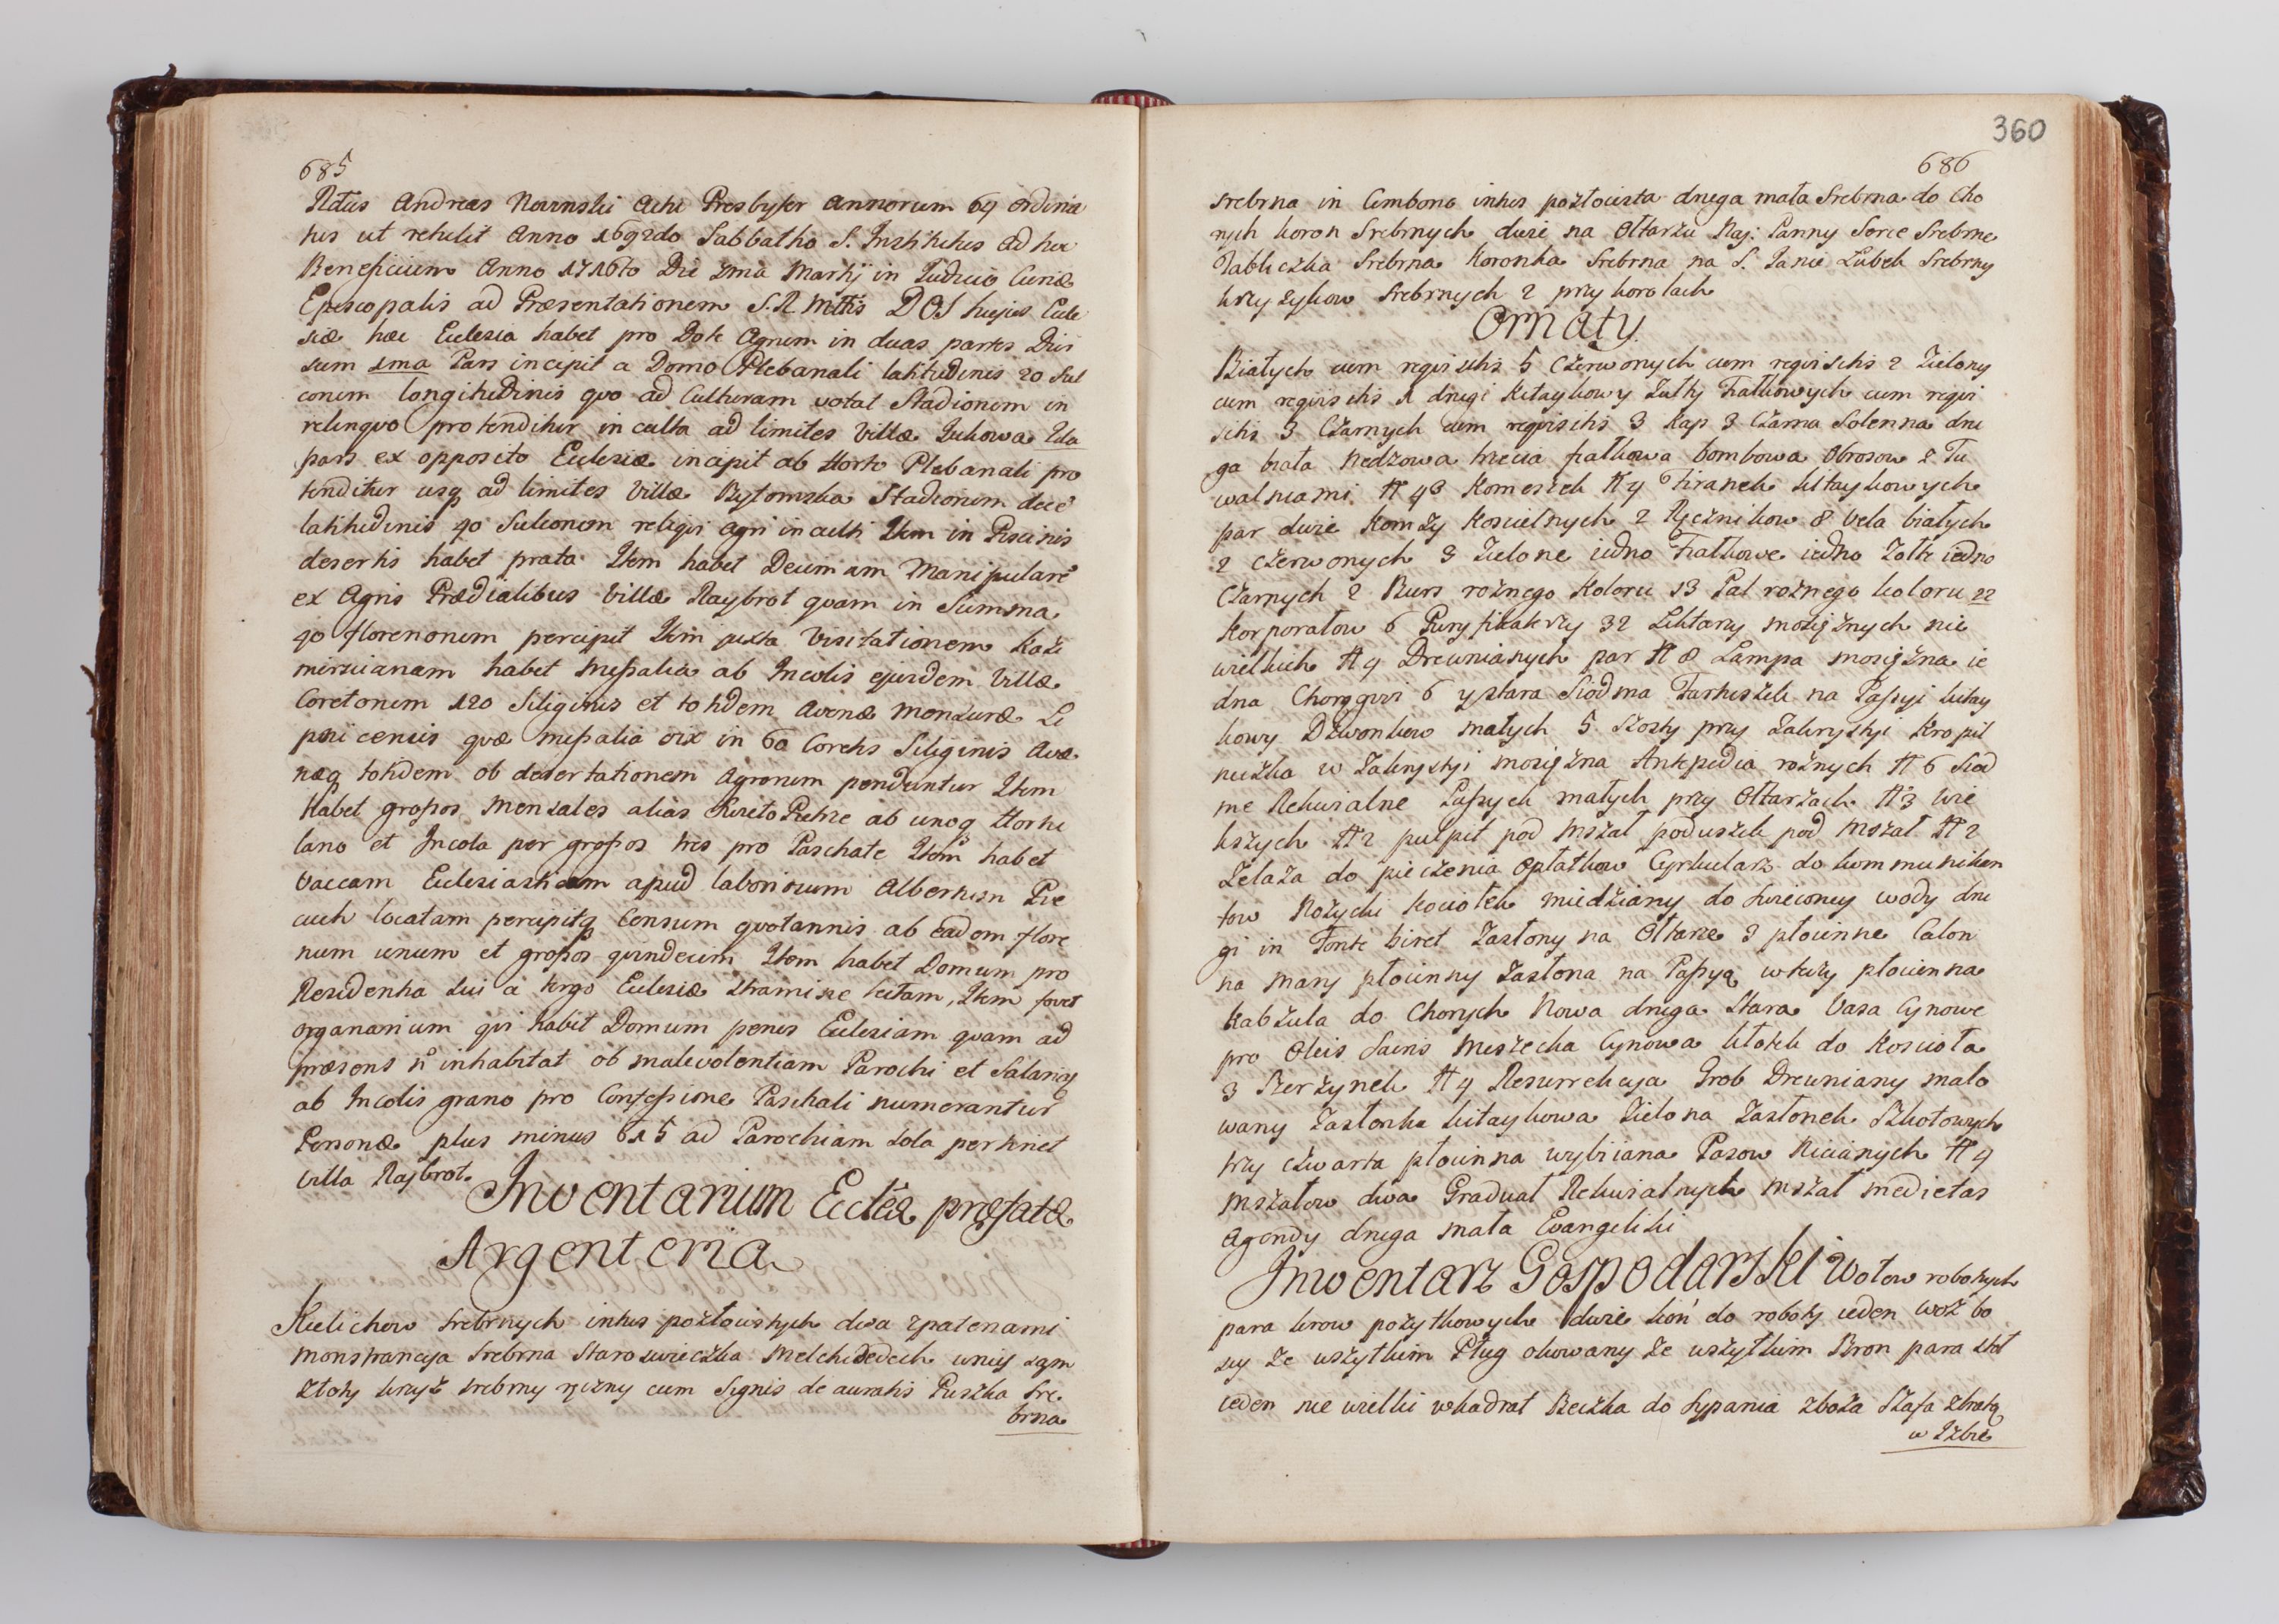 685
Rdus Andreas Nowinski Act. Presbyter annorum 64 ordina
tus ut retulit Anno 1692do Sabbatho S. Institutus ad hoc
Beneficium Anno 1716to Die 2ma Martij in Judicio Curiæ
Episcopalis ad Præsentationem S. R. Mttis DOS hujus Eccle
siæ hæc Ecclesia habet pro Dote Agrum in duas partes Divi
sum 1ma Pars incipit a Domo Plebanali latitudinis 20 Sul
corum longitudinis quo ad Culturam votat Stadionum in
relinquo protenditur in culta ad limites Villæ Żukowa 2da
pars ex opposito Ecclesiæ incipit ab Horto Plebanali pro
tenditur usq ad limites Villæ Bytomska Stadionum decē
latitudinis 40 Sulcorum reliqui agri inculti Item in Piscinis
desertis habet prata Item habet Decimam Manipularē
ex Agris Prædialibus Villæ Raybrot quam in Summa
40 florenorum percipit Item juxta Visitationem Kazi
mirscianam habet Missalia ab Incolis ejusdem Villæ
Coretorum 120 Siliginis et totidem Avenæ Mensuræ Li
pnicensis quæ missalia vix in 60 Coretis Siliginis Ave
næq totidem ob desertationem Agrorum penduntur Item
habet grossos Mensales alias Święto Pietrze ab unoq Hortu
lano et Incola per grossos tres pro Paschate Item habet
Vaccam Ecclesiasticam apud laboriosum Albertum Pie
cuch locatam percipitq Censum quotannis ab eadem flore
num unum et grossos quindecim Item habet Domum pro
Residentia sui a tergo Ecclesiæ stramine tectam, Item fovet
Organarium qui habet Domum penes Ecclesiam quam ad
præsens n inhabitat ob malevolentiam Parochi et Salariũ
ab Incolis grano pro Confessione Paschali numerantur
Personæ plus minus 615 ad Parochiam sola pertinet
Villa Raybrot.
Inventarium Eccłæ præfatæ
Argenteria
Kielichow srebrnych intus pozłocistych dwa z patenami
Monstrancya Srebrna Staroswiecka Melchidedech w niey sam
złoty krzyż srebrny ręczny cum Signis de auratis Puszka Sre
brna
360
686
srebrna in Cimborio intus pozłocista druga mała Srebrna do Cho
rych koron Srebrnych dwie na Ołtarzu Naj: Panny Serce Srebrne
Tabliczka Srebrna Koronka Srebrna na S. Janie Ząbek Srebrny
krzyżykow Srebrnych 2 przy koralach
Ornaty
Białych cum requisitis 5 Czerwonych cum requisitis 2 Zielony
cum requisitis 1 drugi Kitaykowy Żułty Fiałkowych cum requi
sitis 3 Czarnych cum requisitis 3 Kap 3 Czarna Solenna dru
ga biała Nedzowa trzecia fiałkowa bombowa Obrusow z Tu
walniami N 43 Komeszek N 4 Firanek kitaykowych
par dwie Komży Koscielnych 2 Ręcznikow 8 Vela białych
2 Czerwonych 3 Zielone iedno Fiałkowe iedno Żołte iedno
Czarnych 2 Burs rożnego Koloru 13 Pal rożnego koloru 22
Korporałow 6 Puryfikaterzy 32 Lichtarzy mosiężnych nie
wielkich N 4 Drewnianych par N 8 Lampa mosiężna ie
dna Chorągwi 6 y stara Siodma Fartuszek na Passyi kitay
kowy Dzwonkow małych 5 Szosty przy Zakrystyi Kropil
niczka w Zakrystyi mosiężna Antepedia rożnych N 6 Siod
me Rekwialne Passyek małych przy Ołtarzach N 3 Wie
kszych N 2 pulpit pod Mszał poduszek pod Mszał N 2
Żelaza do pieczenia Opłatkow Cyrkularz do kommunikan
tow Nożyczki Kociołek miedziany do święconey wody dru
gi in Fonte biret Zasłony na Ołtarze 3 płocienne Całun
na Mary płocienny Zasłona na Passyą w teży płocienna
Kabzula do Chorych Nowa druga Stara Vasa Cynowe
pro Oleis Sacris Miszecka Cynowa kłotek do Koscioła
3 Skrzynek N 4 Resurrekcya Grob Drewniany malo
wany Zasłonka kitaykowa Zielona Zasłonek Szkotowych
trzy czwarta płocienna wybiiana Pasow Nicianych N 4
Mszałow dwa Graduał Rekwialnych Mszał medietas
Agendy druga mała Evangeliki
Inwentarz Gospodarski Wołow roboczych
para krow pożytkowych dwie koń do roboty ieden Woz bo
sy ze wszytkim Pług okowany ze wszytkim Bron para stoł
ieden nie wielki w kwadrat Beczka do Sypania zboża Szafa z kratą
w Izbie